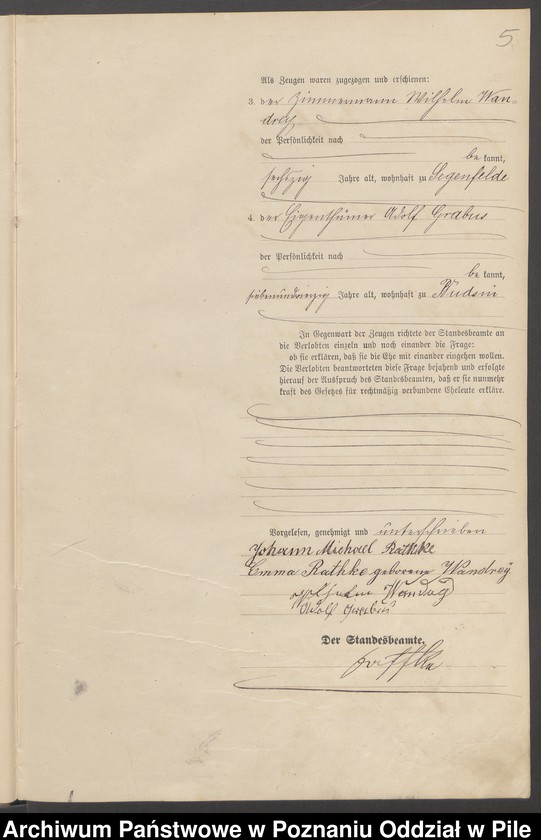 5
Als Zeugen waren zugezogen und erschienen:
3. der Zimmermann Wilhelm Wan-
drey
der Persönlichkeit nach
be kannt,
sechszig Jahre alt, wohnhaft zu Segenfelde
4. der Eigenthümer Adolf Grabus
der Persönlichkeit nach
be kannt,
siebenundvierzig Jahre alt, wohnhaft zu Budsin
In Gegenwart der Zeugen richtete der Standesbeamte an
die Verlobten einzeln und nach einander die Frage:
ob sie erklären, daß sie die Ehe mit einander eingehen wollen.
Die Verlobten beantworteten diese Frage bejahend und erfolgte
hierauf der Ausspruch des Standesbeamten, daß er sie nunmehr
kraft des Gesetzes für rechtmäßig verbundene Eheleute erkläre.
Vorgelesen, genehmigt und unterschrieben
Johann Michael Rathke
Emma Rathke geborene Wandrey
Wilhelm Wandrey
Adolf Grabus
Der Standesbeamte.
Archiwum Państwowe w Poznaniu Oddział w Pile